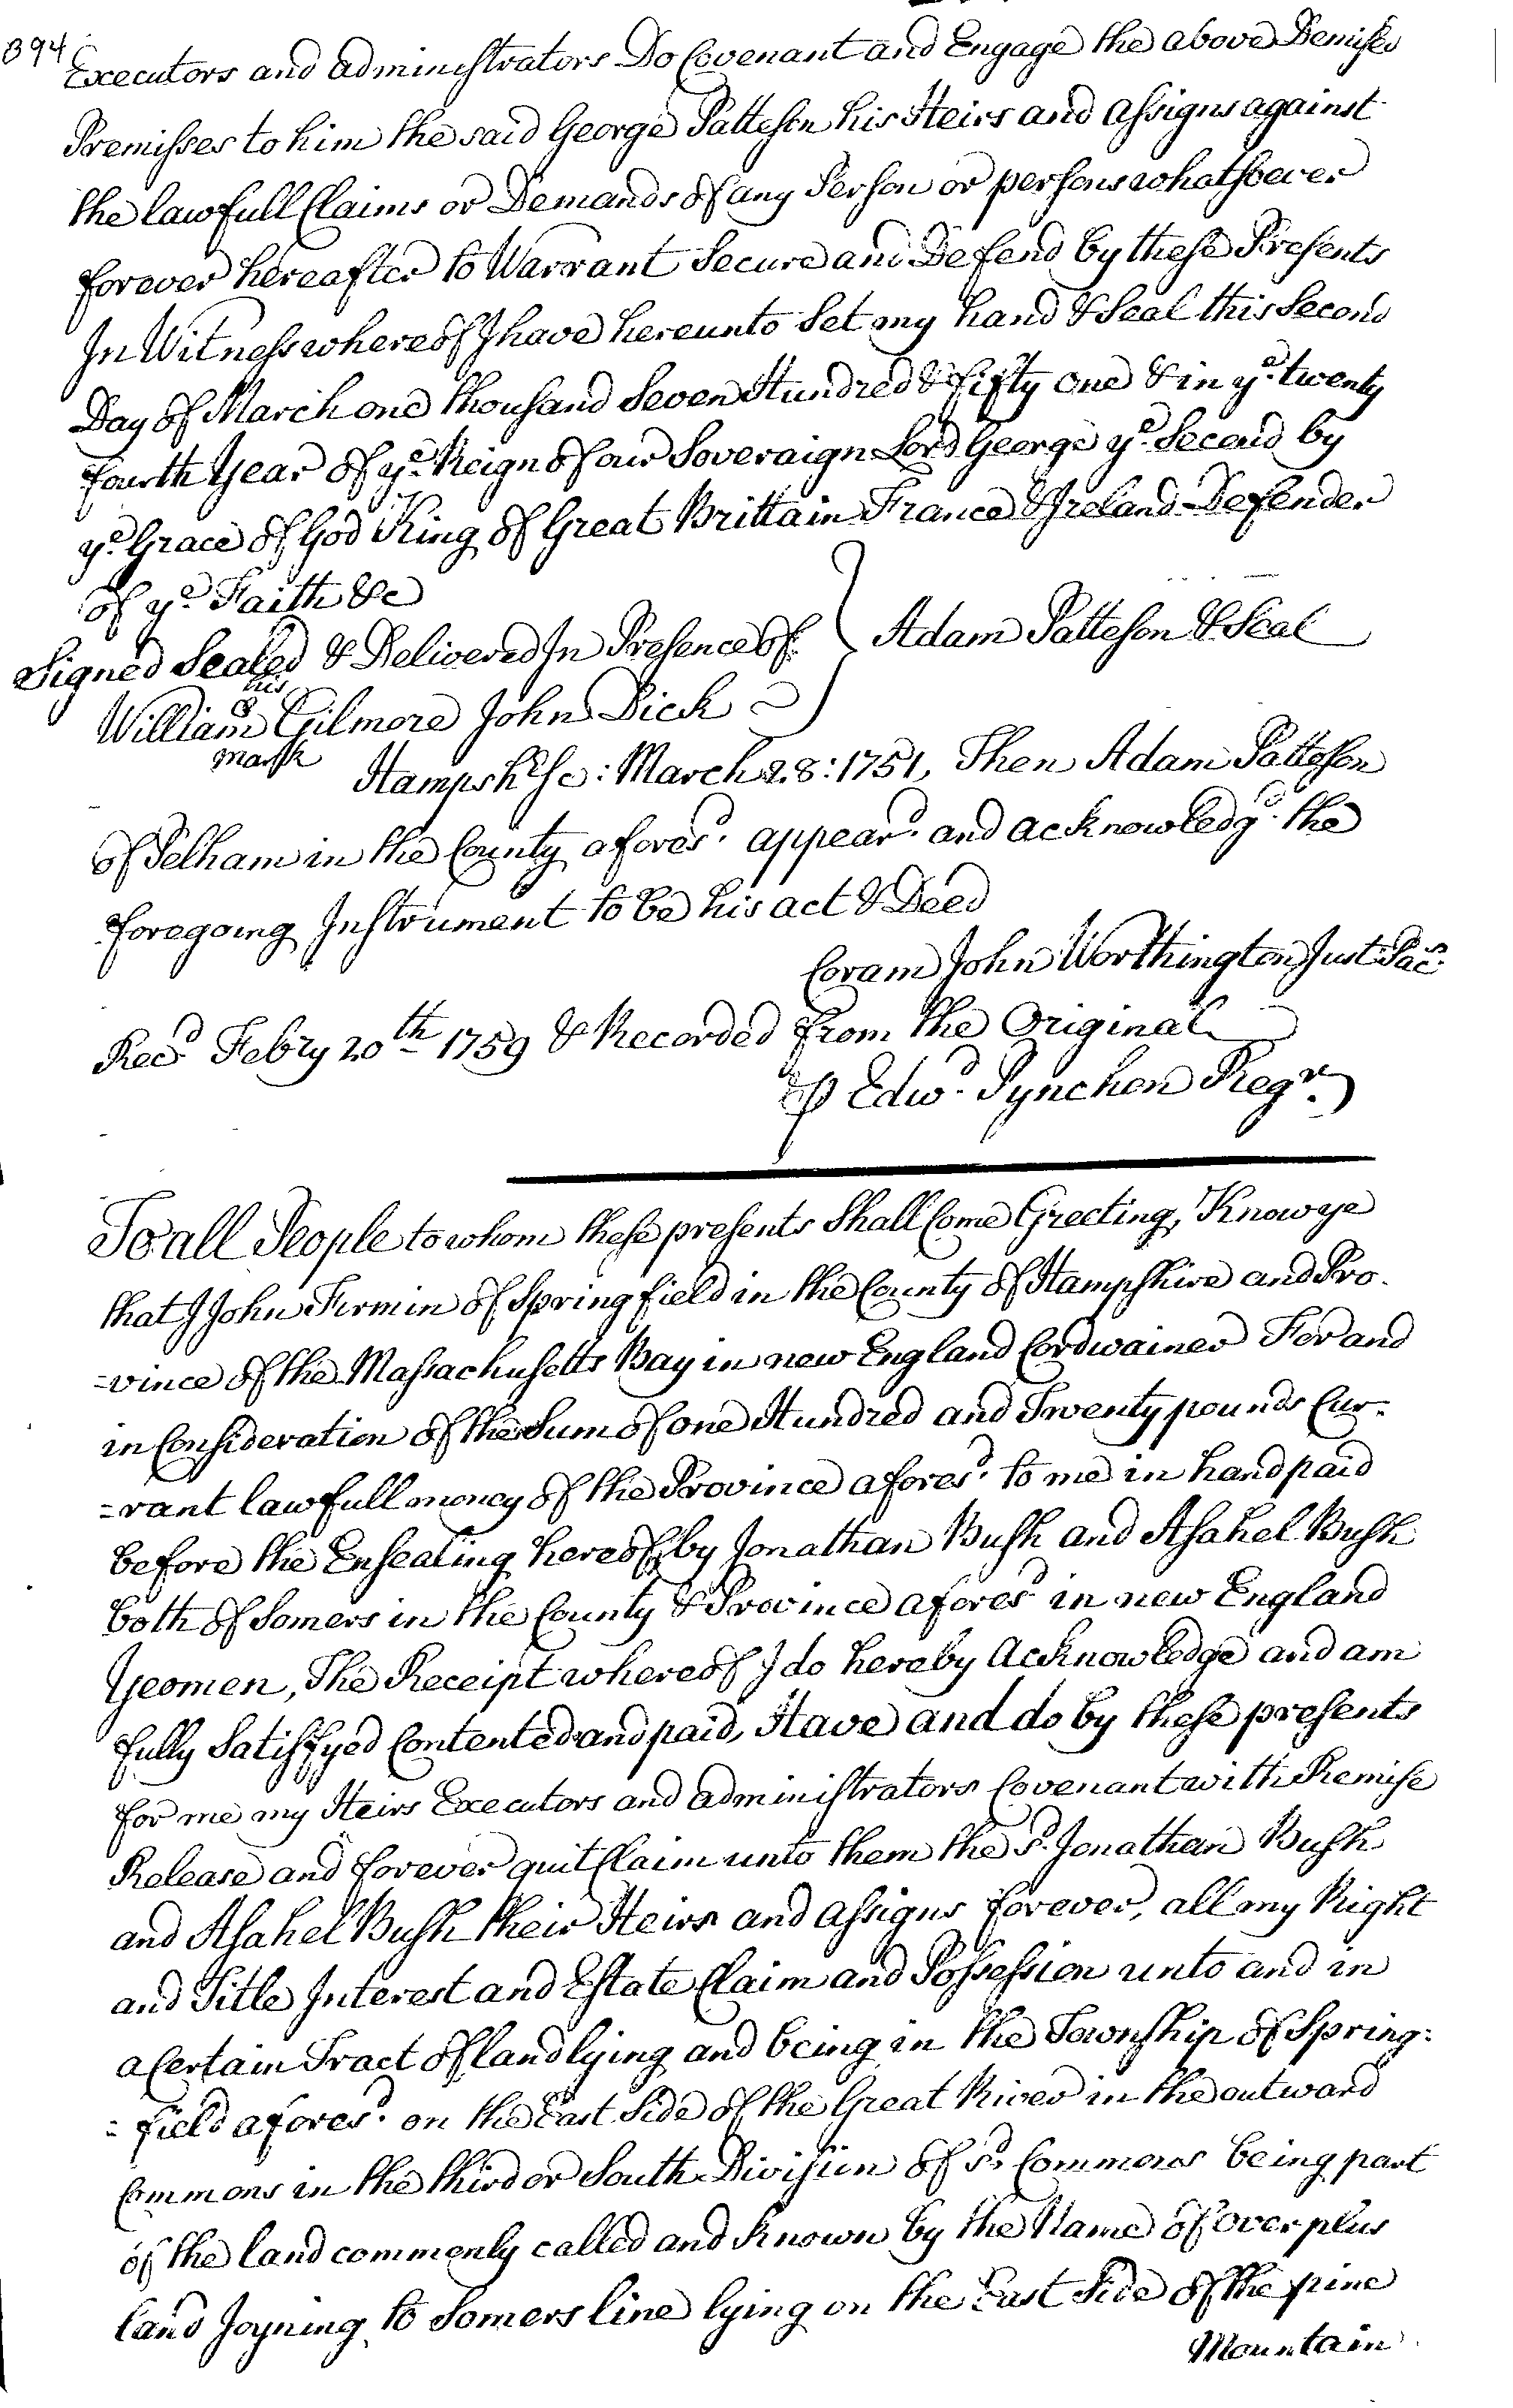 394
Executors and administrators Do Covenant and Engage the above Demised
Premisses to him the said George Patteson his Heirs and assigns against
the lawfull Claims or Demands of any Person or persons whatsoever
forever hereafter to Warrant Secure and Defend by these Presents
In Witness whereof I have hereunto Set my hand & Seal this Second
Day of March one thousand Seven Hundred & fifty one & in ye. twenty
fourth Year of ye. Reign of our Soveraign Lord George ye. Second by
ye. Grace of God King of Great Brittain France & Ireland Defender
of ye. Faith &c
Signed Sealed & Delivered In Presence of } Adam Patteson & Seal
his
William Gilmore John Dick
mark
Hampshr. Sc: March 28: 1751, Then Adam Patteson
of Pelham in the County afores.d appear.d and acknowledg.d the
foregoing Instrument to be his act & Deed
Coram John Worthington Just. Pac.s
Rec.d Febry 20th 1759 & Recorded from the Original
⅌ Edw.d Pynchon Reg.r
To all People to whom these presents Shall Come Greeting, Know ye
that I John Firmin of Springfield in the County of Hampshire and Pro-
=vince of the Massachusetts Bay in new England Cordwainer For and
in Consideration of the Sum of one Hundred and Twenty pounds Cur-
=rant lawfull money of the Province afores.d to me in hand paid
before the Ensealing hereof by Jonathan Bush and Asahel Bush
both of Somers in the County & Province afores.d in new England
Yeomen, The Receipt whereof I do hereby Acknowledge and am
fully Satisfyed Contented and paid, Have and do by these presents
for me my Heirs Executors and administrators Covenant with Remise
Release and forever quit Claim unto them the s.d Jonathan Bush
and Asahel Bush their Heirs and assigns forever, all my Right
and Title Interest and Estate Claim and Possession unto and in
a Certain Tract of land lying and being in the Township of Spring-
=field afores.d on the East Side of the Great River in the outward
Commons in the third or South Division of s.d Commons being part
of the land commonly called and known by the Name of over plus
land Joyning to Somers line lying on the East Side of the pine
Mountain